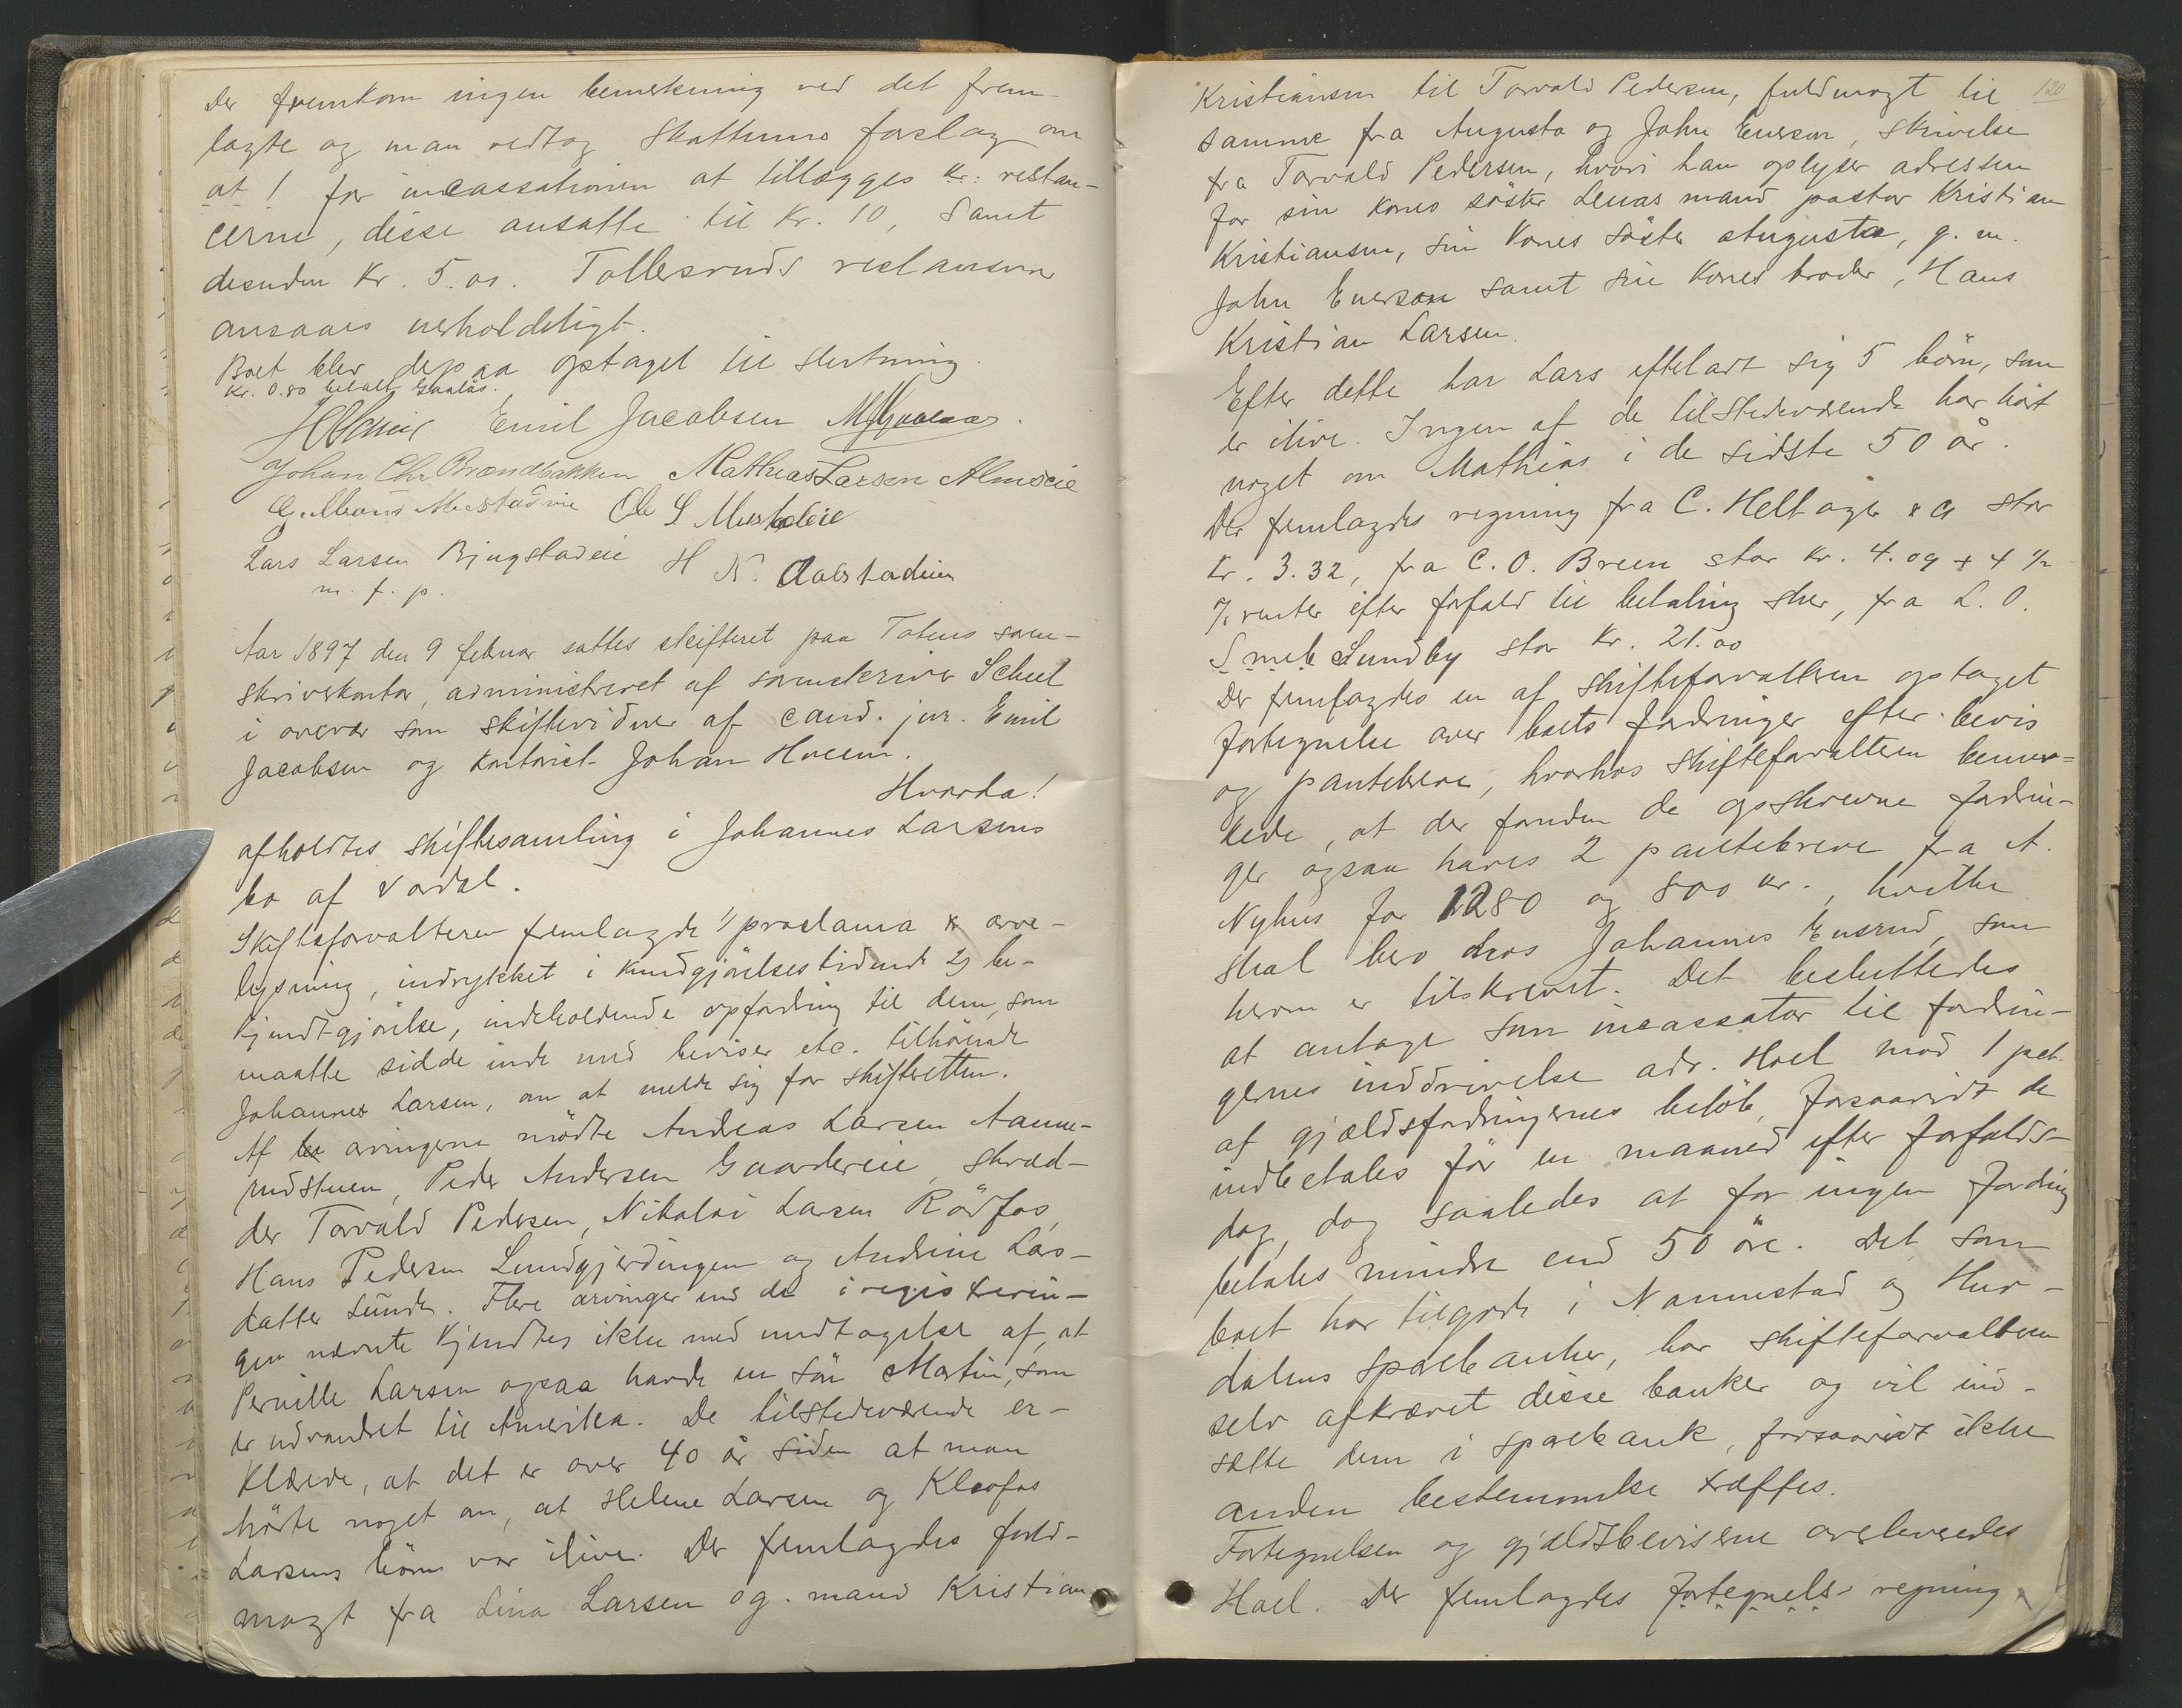 Der fremkom ingen bemerkning ved det frem-
lagte og man vedtog Skattums forslag om
at ! for incassationen at tillægges kr: restan-
cerne, disse ansatte til Kr. 10, samt
desuden Kr. 5.00. Tollersruds restancer
ansaaes uerholdeligt.
Boet blev derpaa optaget til slutning.
Kr. 0.80 betalt Gaalaas.
Emil Jacobsen
Johan Chr Brændbakken Mathias Larsen Almseie
Ole L Mustadeie
Lars Larsen Bjugstadeie H N.
m. f. p.
Aar 1897 den 9 februar sattes skifteret paa Totens soren-
skriverkontor, administreret af sorenskriver Scheel
i overvær som skiftevidner af cand. jur. Emil
Jacobsen og kontorist Johan Hveem.
Hvorda!
afholdtes skiftesamling i Johannes Larsens
bo af Vardal.
Skifteforvalteren fremlagde 1/ proclama & arve-
lysning, indrykket i Kundgjörelsestidende 2) be-
kjendtgjörelse, indeholdende opfordring til dem, som
maatte sidde inde med beviser etc. tilhörende
Johannes Larsen, om at melde sig for skifteretten.
Af arvingerne mödte Andreas Larsen Aanne-
rudstuen, Peder Andersen Gaardereie, skræd-
der Torvald Pedersen, Nikolai Larsen Rödfos,
Hans Pedersen Lundgjerdingen og Andrine Lars-
datter Sunde. Flere arvinger end de i registerin-
gen nævnte kjendtes ikke med undtagelse af, at
Pernille Larsen ogsaa havde en sön Martin, som
er udvandret til Amerika. De tilstedeværende er-
klærede, at det er over 40 år siden at man
hörte noget om, at Helene Larsen og Kleofas
Larsens börn var ilive. Der fremlagdes fuld-
magt fra Lina Larsen og mand Kristian
120
Kristiansen til Torvald Pedersen, fuldmagt til
samme fra Augusta og John Enerson, skrivelse
fra Torvald Pedersen, hvori han oplyser adressen
for sin kones söster Lenas mand pastor Kristian
Kristiansen, sin kones söster Augusta, g. m.
John Enerson samt sin kones broder, Hans
Kristian Larsen.
Efter dette har Lars efterladt sig 5 börn, som
er ilive. Ingen af de tilstedeværende har hört
noget om Mathias i de sidste 50 år.
Der fremlagdes regning fra C. Heltage & Co stor
Kr. 3.32, fra C. O. Breen stor Kr. 4.09 + 4 1/2
% renter efter forfald til betaling sker, fra L. O.
Smeb Lundby stor Kr. 21.00
Der fremlagdes en af skifteforvalteren optaget
fortegnelse over boets fordringer efter bevis
og pantebreve, hvorhos skifteforvalteren bemer=
kede, at der foruden de opskrevne fordrin-
ger ogsaa haves 2 pantebreve fra A.
Nyhus for 1280 og 800 kr., hvilke
skal bero hos Johannes Enerud, som
herom er tilskrevet. Det besluttedes
at antage som incassator til fordrin-
gernes inddrivelse adv. Hoel mod 1 pct.
af gjældsfordringernes belöb, forsaavidt de
indbetales för en maaned efter forfalds-
dag, dog saaledes at for ingen fordring
betales mindre end 50 öre. Det som
boet har tilgode i Nannestad og Hur-
dalens sparebanker, har skifteforvalteren
selv afkrævet disse banker og vil ind-
sætte dem i sparebank, forsaavidt ikke
anden bestemmelse træffes.
Fortegnelsen og gjældsbeviserne overleveredes
Hoel. Der fremlagdes fortegnels- regning